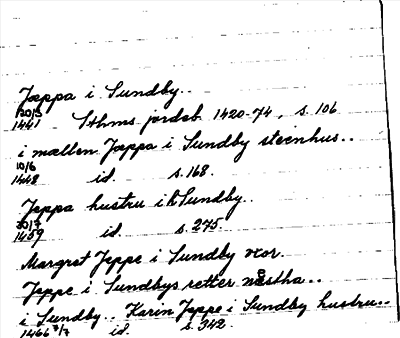 Jæppa i Sundby..
20/3
1441 Sthms jordeb 1420-74, s. 106
i mællen Jæppa i Sundby steenhus..
10/6
1448 id. s. 168.
Jeppa hustru i Sundby..
30/7
1459 id. s. 275.
Margret Jeppe i Sundby
Jeppe i Sundbys retter næstha..
i Sundby.. Karin Jeppe i Sundby hustru..
1466 3/7 id. s. 342.